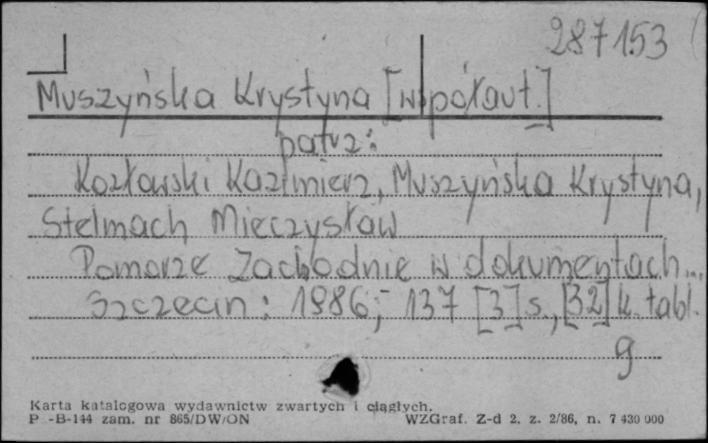 287153
Muszyńska Krystyna [współaut.]
patrz:
Kozłowski Kazimierz, Muszyńska Krystyna,
Stelmach Mieczysław
Pomorze Zachodnie w dokumentach...
Szczecin: 1986, - 137 [3] s., [32] k. tabl.
g
Karta katalogowa wydawnictw zwartych i ciągłych.
P -B-144 zam. nr 865/DW/ON WZGraf. Z-d 2, z. 2/86, n. 7 430 000